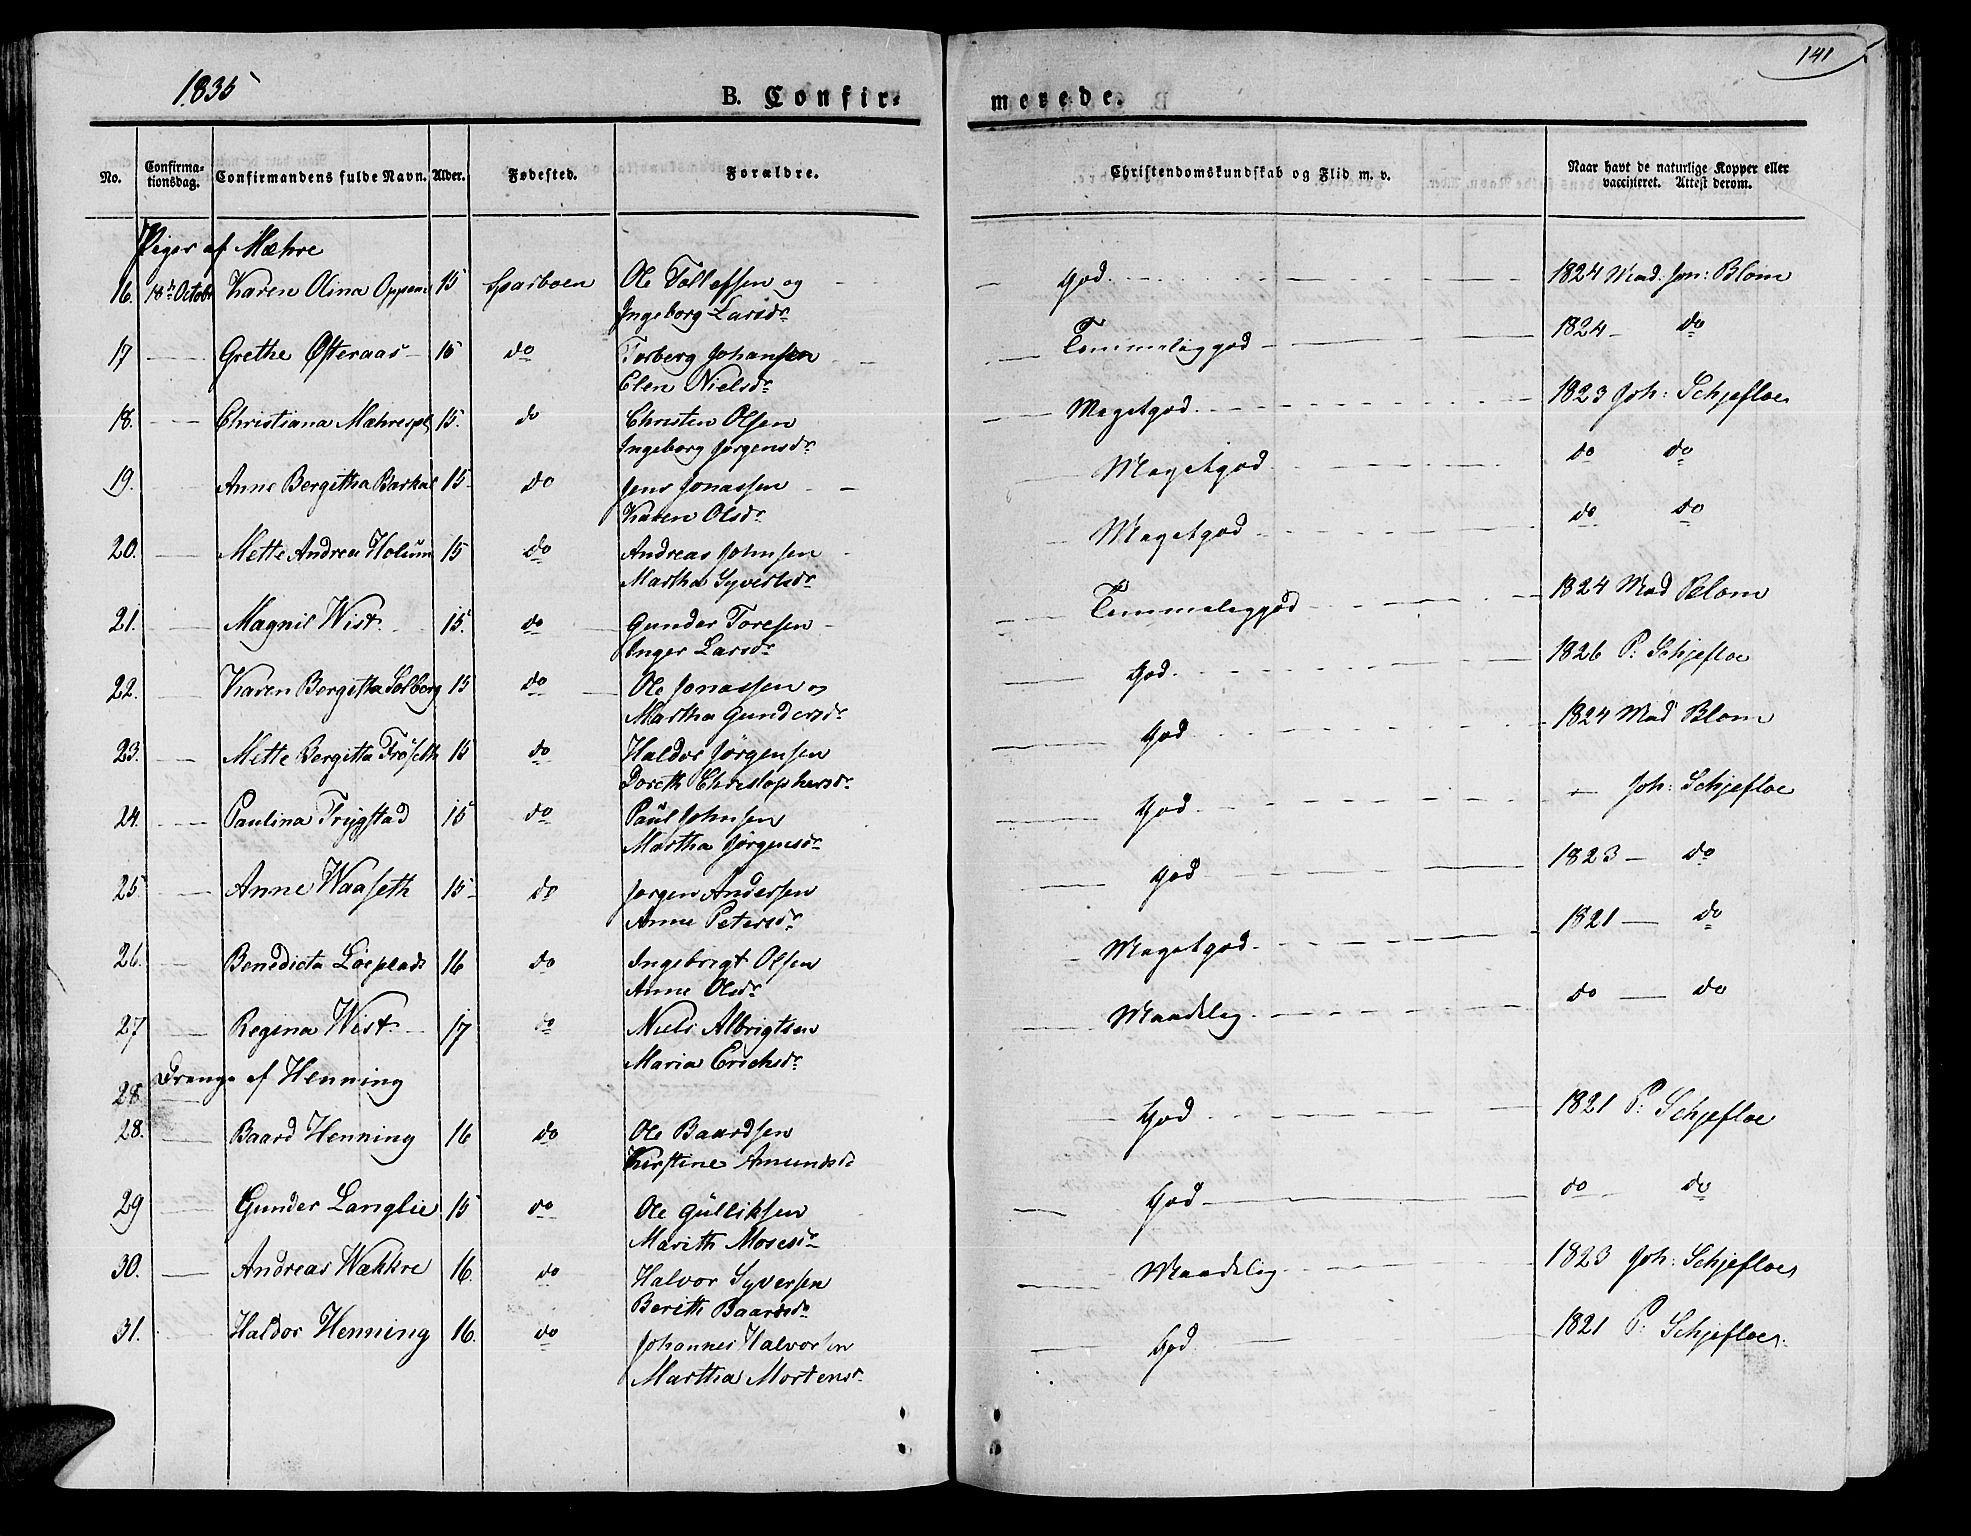 1835
B. Confir-
merede.
141
No.
Confirma-
tionsdag.
Confirmandens fulde Navn.
Alder.
Fødested.
Forældre.
Christendomskundskab og Flid m. v.
Naar havt de naturlige Kopper eller
vaccineret. Attest derom.
Piger af Mæhre
16. 18de Octobr Karen Olina 15 Sparboen Ole Tollefsen og God. 1824 Mad. Jon: Blom
Ingeborg Larsdr
17 Grethe Østeraas 15 do Torberg Johansen Temmelig god 1824 do
Elen Nielsdr
18. Christiana Mæhrespl 15. do Christen Olsen Meget god. 1823 Joh: Schjefloe
Ingeborg Jørgensdr
19. Anne Bergitha Barkal 15 do Jens Jonassen Meget god do do
Karen Olsdr
20. Mette Andrea Holum 15 do Andreas Johnsen Meget god do do
Martha Syvertsdr
21. Magnil Wist 15. do Gunder Toresen Temmelig god 1824 Mad Blom
Inger Larsdr
22. Karen Bergitta Solberg 15 do Ole Jonassen og God. 1826 P: Schjefloe
Martha Gundersdr
23. Mette Bergitta Frøseth 15 do Haldor Jørgensen God 1824 Mad Blom
Doreth Christophersdr
24. Paulina Trygstad 15 do Paul Johnsen God Joh: Schjefloe
Martha Jørgensdr
25 Anne Waaseth 15 do Jørgen Andersen God 1823 do
Anne Petersdr
26. Benedicta 16 do Ingebrigt Olsen Meget god 1821 do
Anne Olsdr
27 Regina Wist 17 do Niels Albrigtsen Maadelig do do
Maria Erichsdr
28 Drenge af Henning
28. Baard Henning 16 do Ole Baardsen God 1821 P: Schjefloe
Kirstine Amundsdr
29 Gunder Langlie 15 do Ole Gulliksen God do do
Marith Mosesdr
30. Andreas Wækkre 16. do Halvor Syversen Maadelig 1823 Joh: Schjefloe
Berith Baardsdr
31. Haldor Henning 16. do Johannes Halvorsen God 1821 P: Schjefloe
Martha Mortensdr